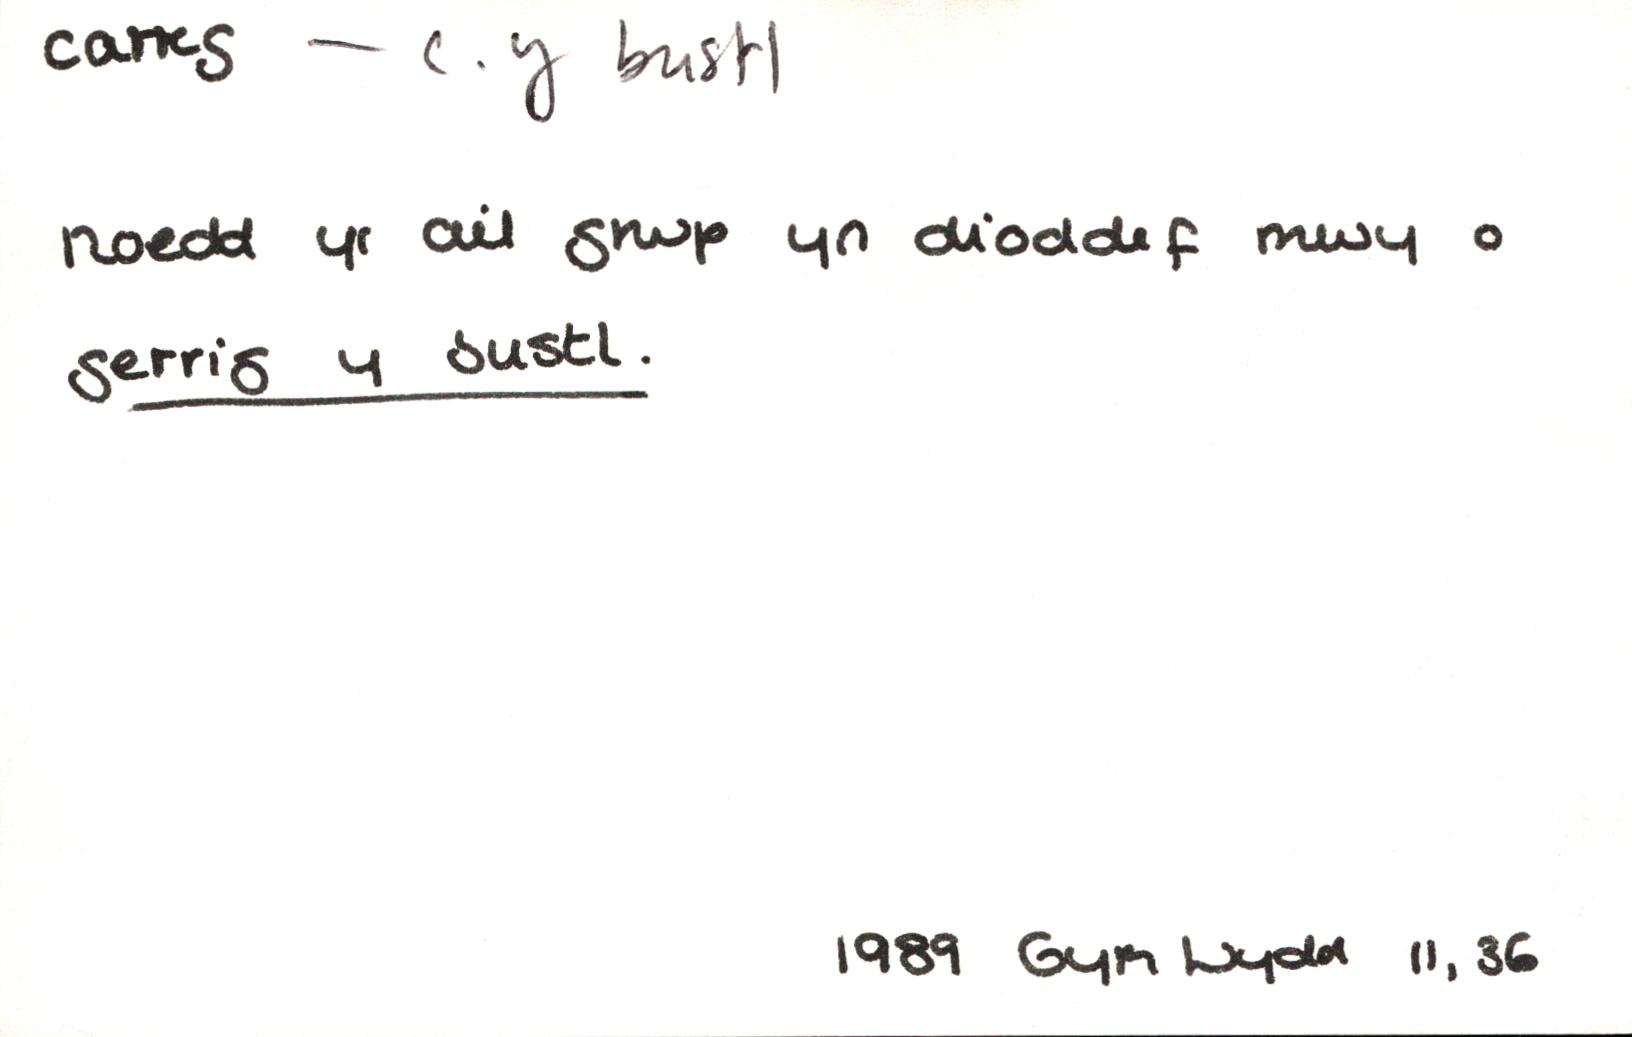 carreg — c. y bustl
roedd yr ail grwp yn dioddef mwy o
gerrig y bustl.
1989 Gym Wydd 11, 36